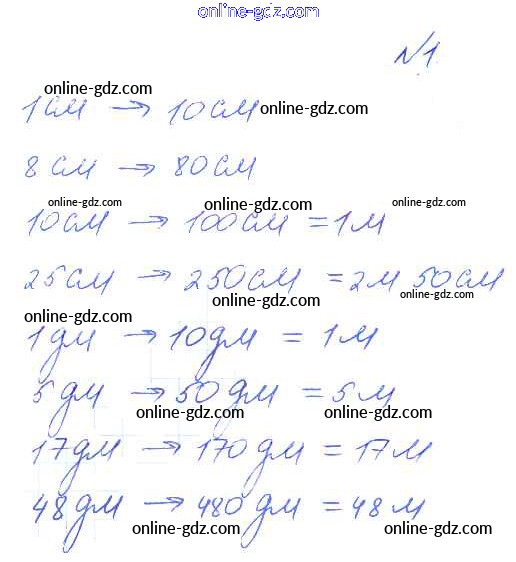 online-gdz.com
№1.
online-gdz.com
1см → 10см online-gdz.com
8см → 80см
online-gdz.com online-gdz.com online-gdz.com
10см → 100см = 1м
25см → 250см = 2м 50см
online-gdz.com online-gdz.com
online-gdz.com
1дм → 10дм = 1м
5дм → 50дм = 5м
online-gdz.com online-gdz.com
17дм → 170дм = 17м
online-gdz.com online-gdz.com
48дм → 480дм = 48м
online-gdz.com online-gdz.com